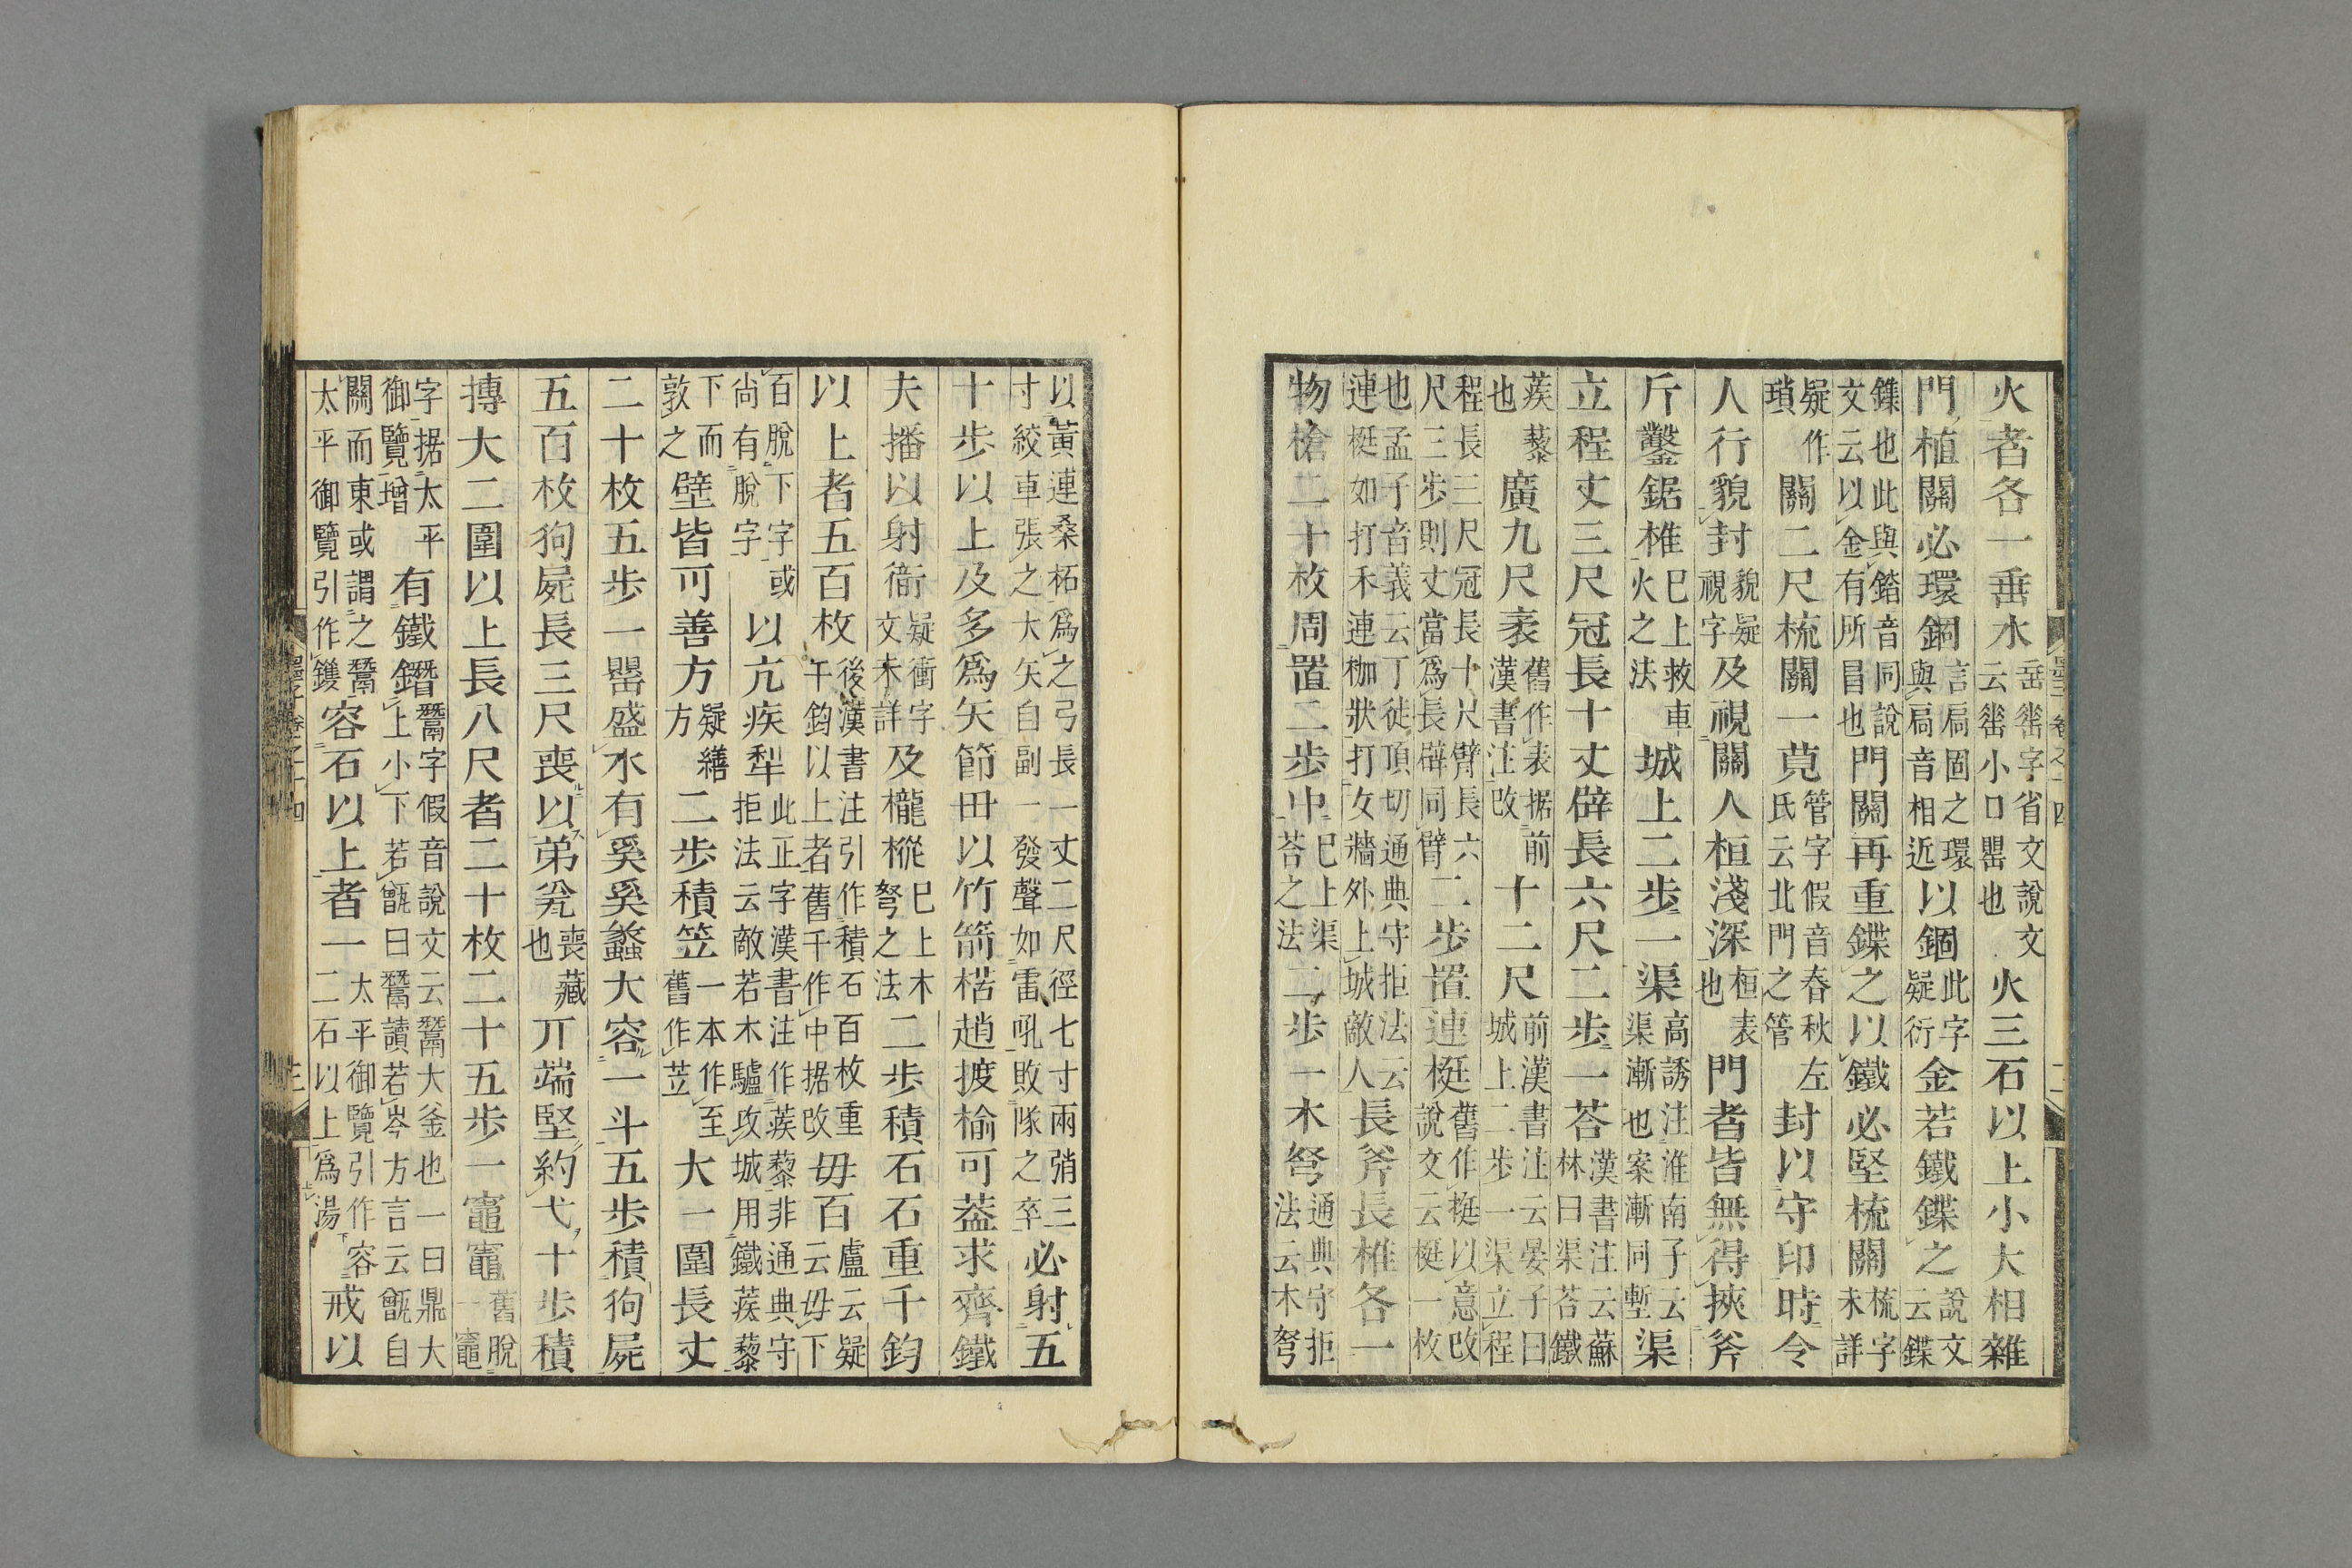 火者各一垂水垂𦉈字省文說文云𦉈小口罌也火三石以上小大相雜
門植關必環錮言扃固之環與扃音相近以錮此字疑衍金若鐵鍱之說文云鍱
鏶也此與錔音同說文云以金有所冒也門關再重鍱之以鐵必堅梳關梳字未詳
疑作瑣關二尺梳關一莧管字假音春秋左氏云北門之管封以守印時令
人行貌封貌疑視字及視關人桓淺深桓表也門者皆無得挾斧
斤鑿鋸椎已上救車火之法城上二步一渠高誘注淮南子云渠漸也案漸同塹渠
立程丈三尺冠長十丈辟長六尺二步一荅漢書注云蘇林曰渠荅鐵
蒺藜也廣九尺袤舊作表据前漢書注改十二尺前漢書注云晏子曰城上二步一渠立程
程長三尺冠長十尺臂長六尺三步則丈當爲長辟同臂二步置連梃舊作挺以意改說文云梃一枚
也孟子音義云丁徒頂切通典守拒法云連梃如打禾連枷狀打女牆外上城敵人長斧長椎各一
物槍二十枚周置二步中已上渠荅之法二步一木弩通典守拒法云木弩
墨子卷之十四
二
以黃連桑柘爲之弓長一丈二尺徑七寸兩弰三寸絞車張之大矢自副一發聲如雷吼敗隊之卒必射五
十步以上及多爲矢節毌以竹箭楛趙㨽榆可葢求齊鐵
夫播以射𧗾疑衝字文未詳及櫳樅已上木弩之法二步積石石重千鈞
以上者五百枚後漢書注引作積石百枚重千鈞以上者舊千作中据改毋百盧云疑云毋下
百脫下字或尚有脫字以亢疾犁此正字漢書注作蒺藜非通典守拒法云敵若木驢攻城用鐵蒺藜
下而敦之壁皆可善方疑繕方二步積笠一本作至舊作苙大一圍長丈
二十枚五步一罌盛水有奚奚蠡大容一斗五步積狗屍
五百枚狗屍長三尺喪以弟瓮喪藏也丌端堅約弋十步積
摶大二圍以上長八尺者二十枚二十五步一竈竈舊脫一竈
字据太平御覽增有鐵鐕鬵字假音說文云鬵大釜也一曰鼎大上小下若甑曰鬵讀若岑方言云甑自
關而東或謂之鬵太平御覽引作鑊容石以上者一太平御覽引作容二石以上爲湯戒以
墨子卷之十四